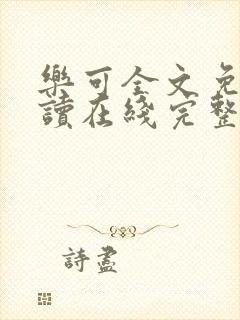 樂可全文免
讀在綫完整
詩盡